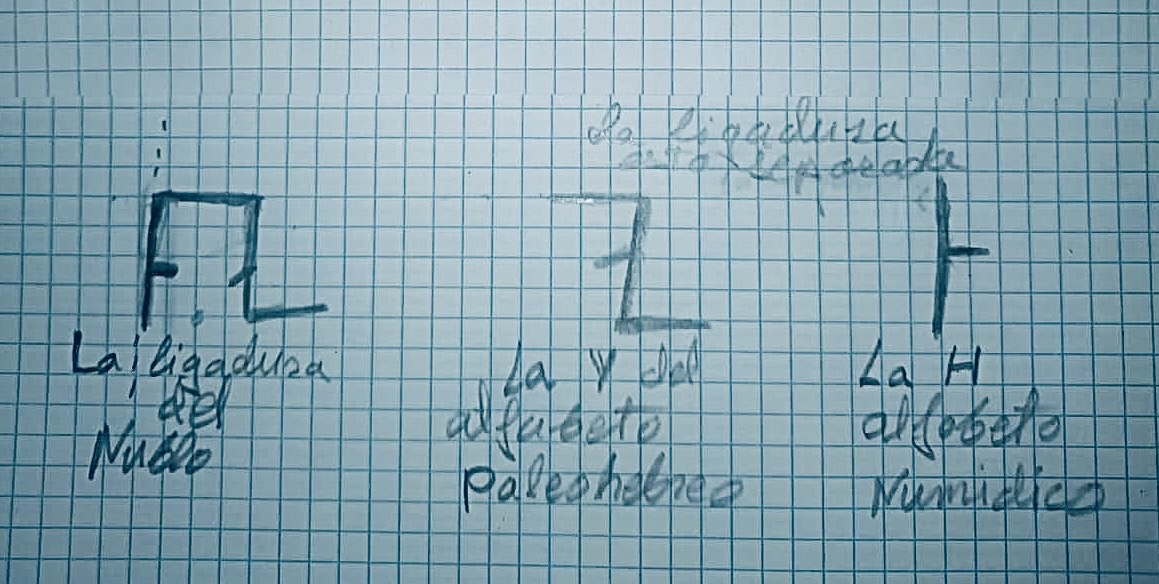 La ligadura
está separada
La ligadura
del
Nublo
La Y del
alfabeto
paleohebreo
La H
alfabeto
Numidico